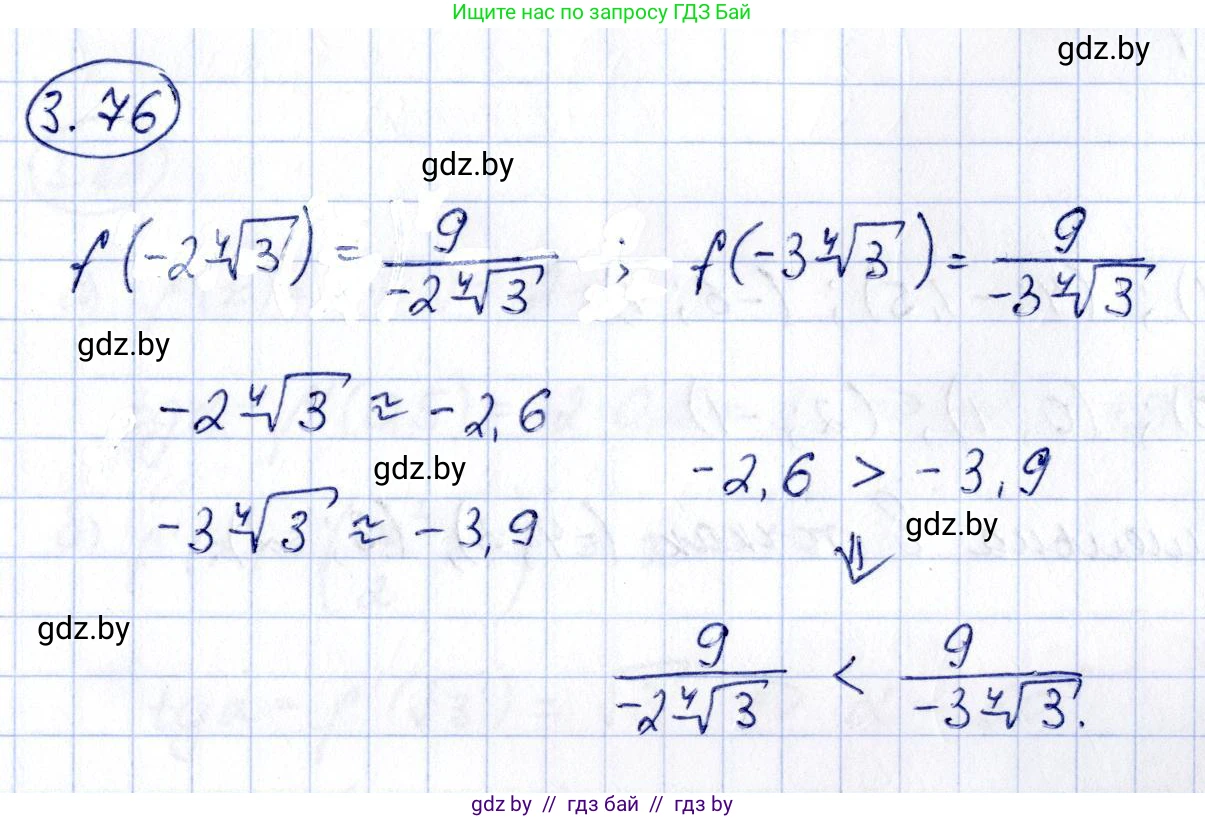 Ищите нас по запросу ГДЗ Бай
gdz.by
3.76
gdz.by
f(-2∜3) = 9/(-2∜3) ; f(-3∜3) = 9/(-3∜3)
gdz.by
-2∜3 ≈ -2,6
gdz.by
-2,6 > -3,9
-3∜3 ≈ -3,9
gdz.by
⇓
gdz.by
9/(-2∜3) < 9/(-3∜3).
gdz by // гдз бай // гдз by